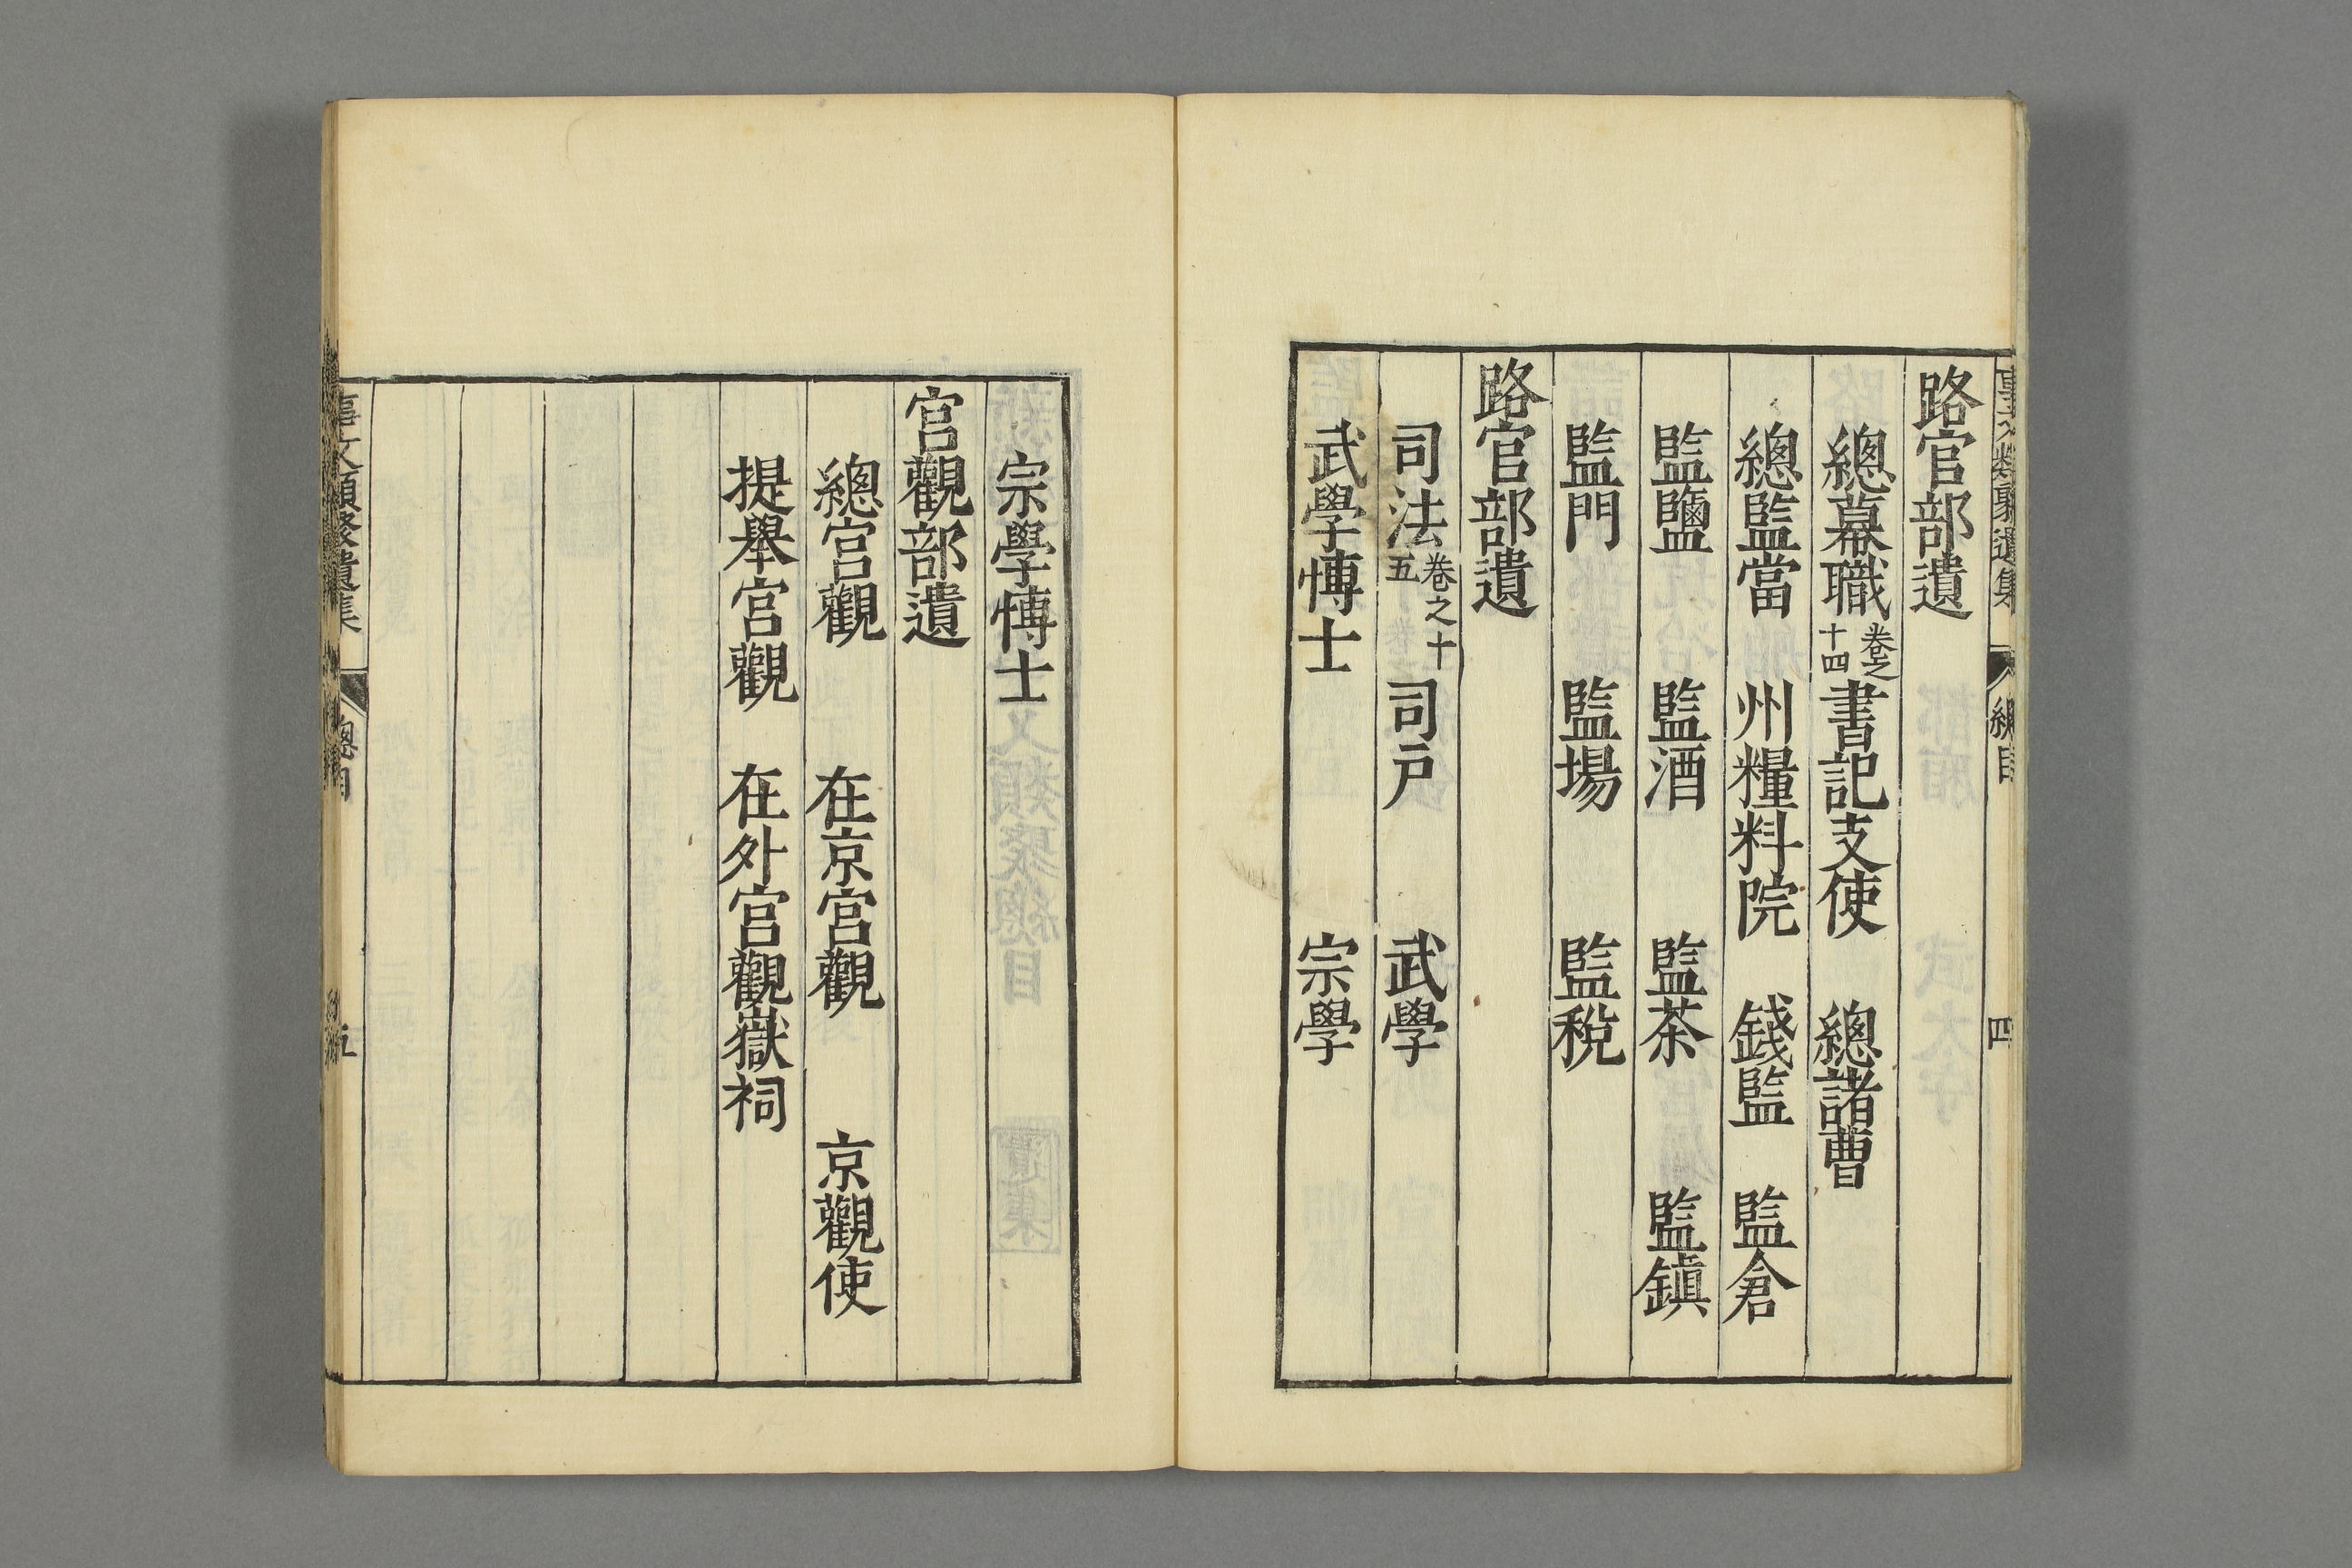 事文類聚遺集 總目 四
路官部遺
總幕職 卷之十四 書記支使 總諸曹
總監當 州糧料院 錢監 監倉
監鹽 監酒 監茶 監鎮
監門 監場 監稅
路官部遺
司法 卷之十五 司戶 武學
武學愽士 宗學
宗學愽士
宫觀部遺
總宫觀 在京宫觀 京觀使
提舉宫觀 在外宫觀嶽祠
事文類聚遺集 總目 五